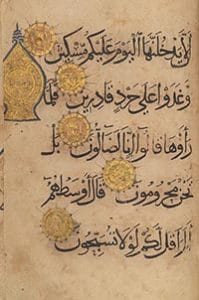 لَا يَدْخُلَنَّهَا الْيَوْمَ عَلَيْكُمْ مِسْكِينٌ
وَغَدَوْا عَلَى حَرْدٍ قَادِرِينَ فَلَمَّا
رَأَوْهَا قَالُوا إِنَّا لَضَالُّونَ بَلْ
نَحْنُ مَحْرُومُونَ قَالَ أَوْسَطُهُمْ
أَلَمْ أَقُلْ لَكُمْ لَوْلَا تُسَبِّحُونَ